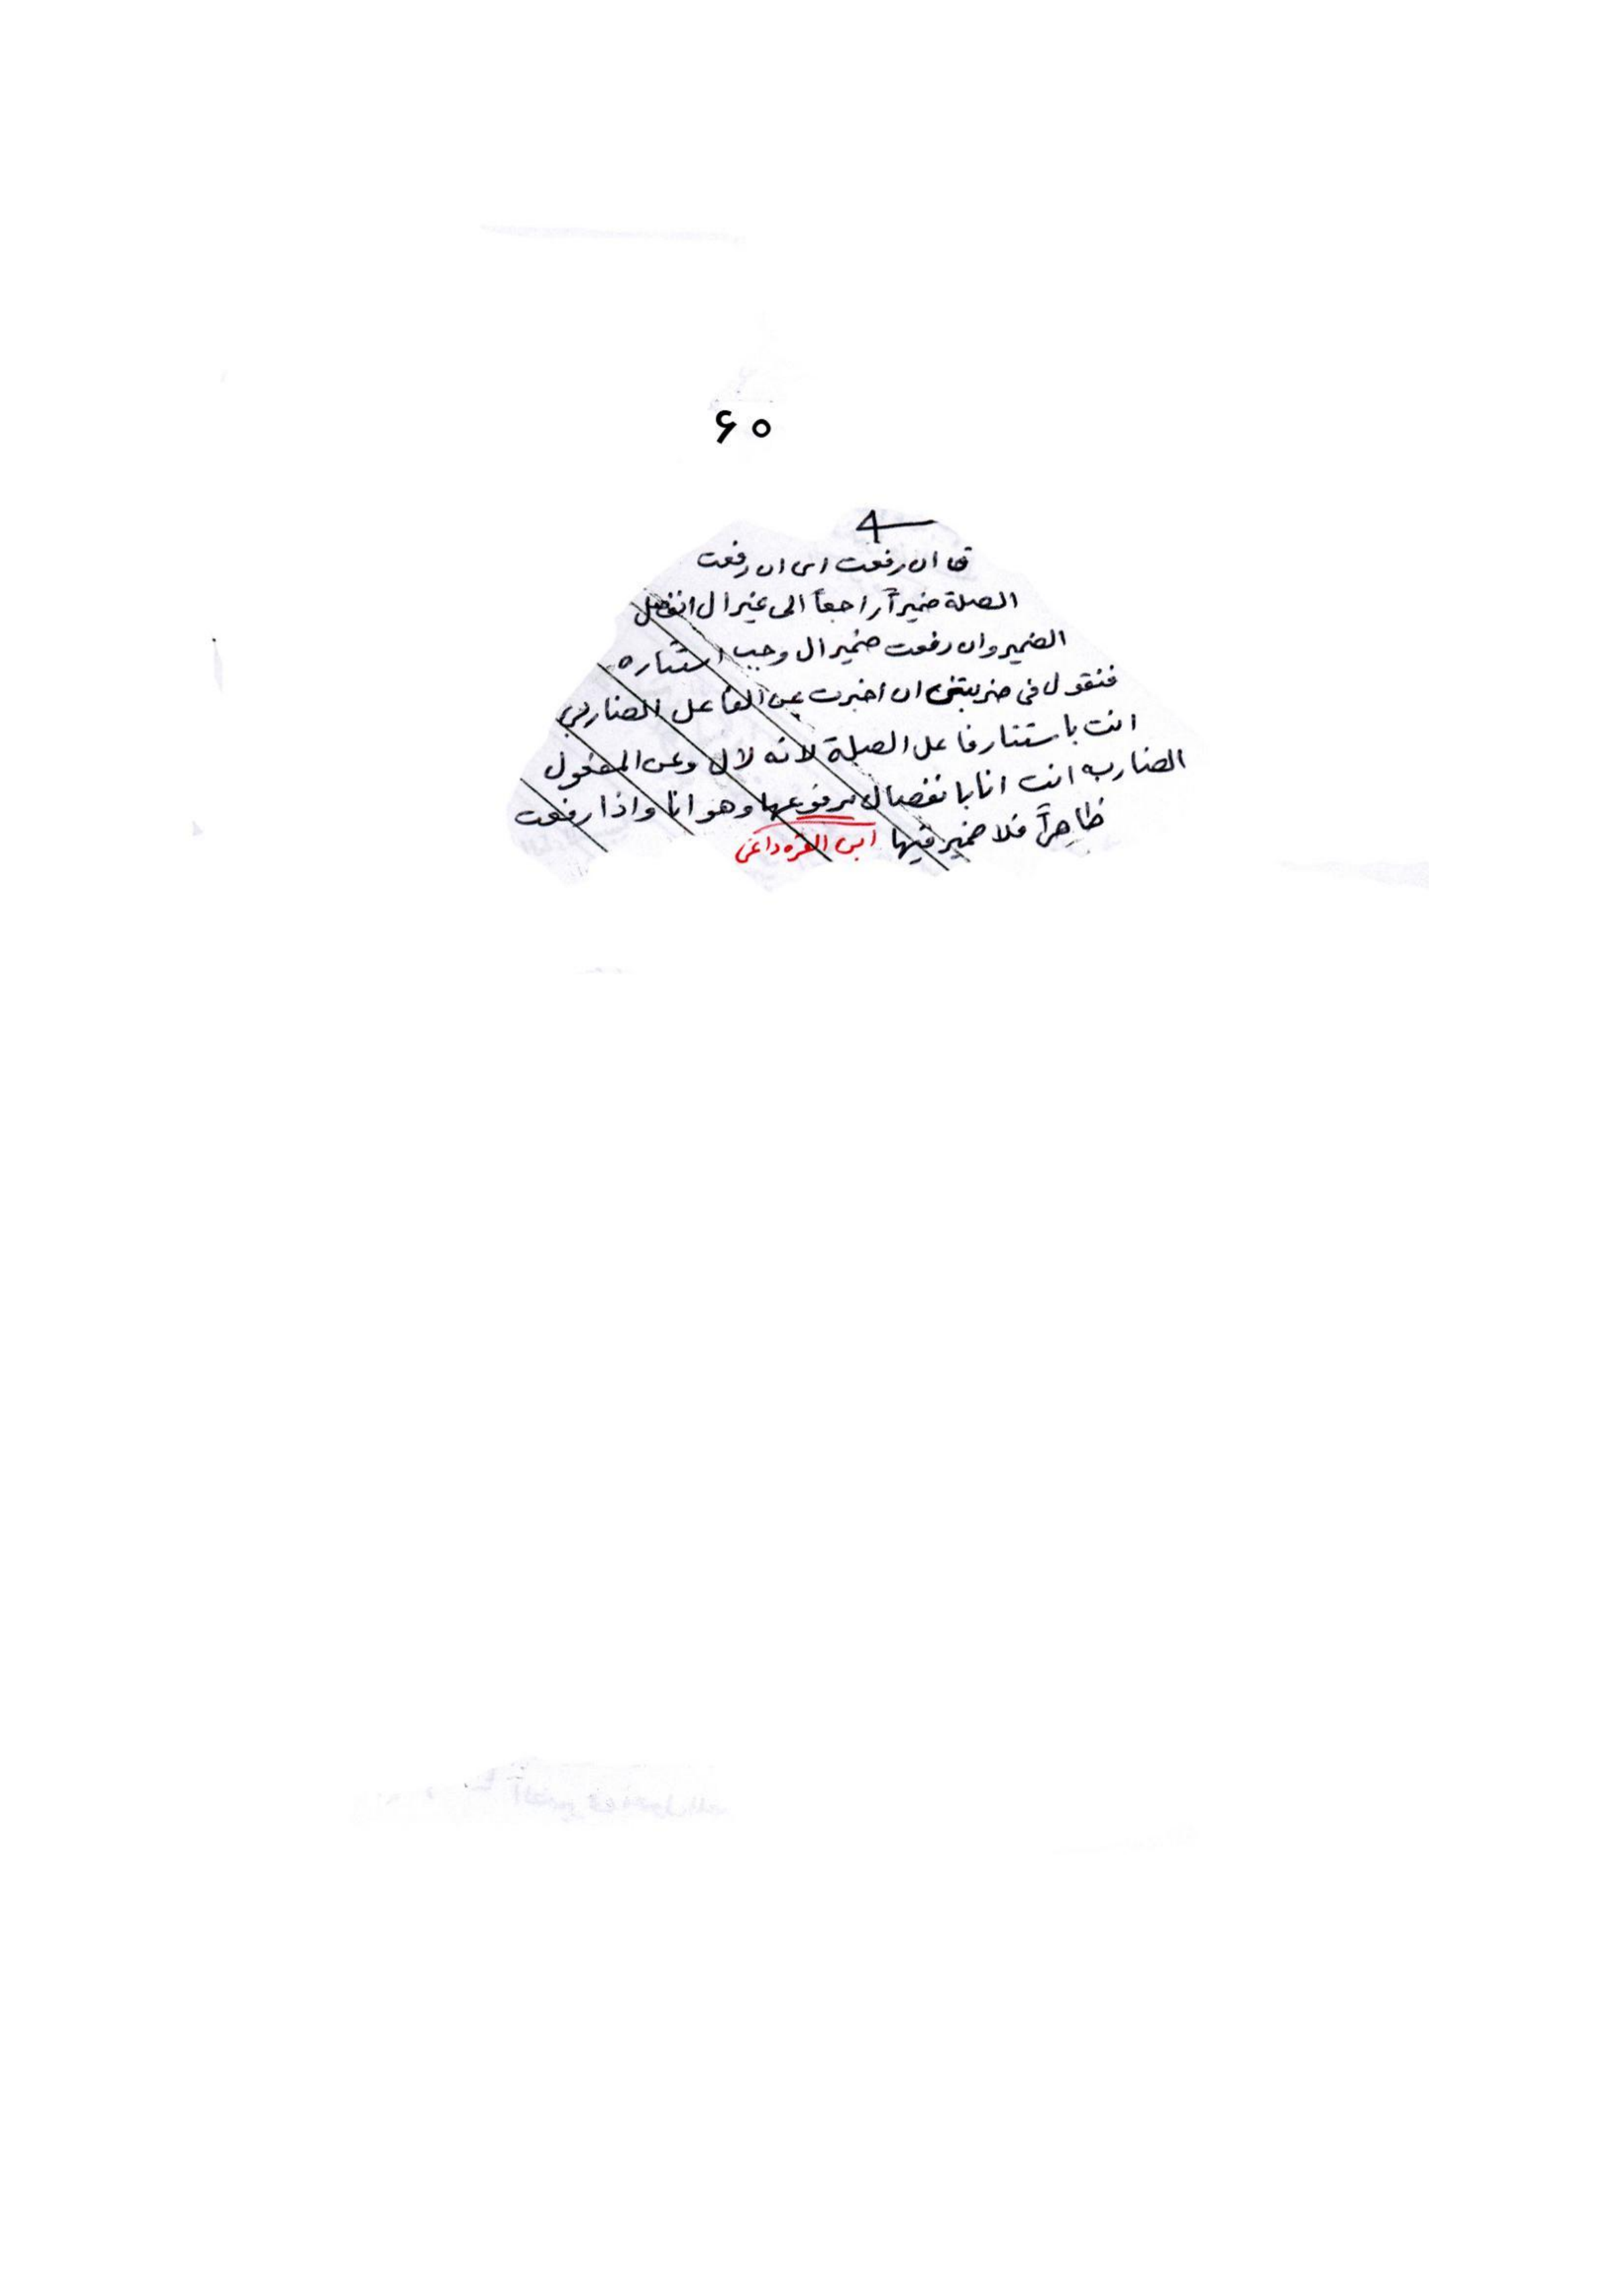 ۶۰
قا ان رفعت اى ان رفعت
الصلة ضميرآ راجعاً الى غير ال انفصل
الضمير وان رفعت ضمير ال وجب استتاره
فنقول فى ضربتنى ان اخبرت عن الفاعل الضاربى
انت باستتار فاعل الصلة لانه لال وعن المفعول
الضاربه انت انا بانفصال مرفوعها وهو انا واذا رفعت
ظاهرآ فلا ضمير فيها ابن القره داغى